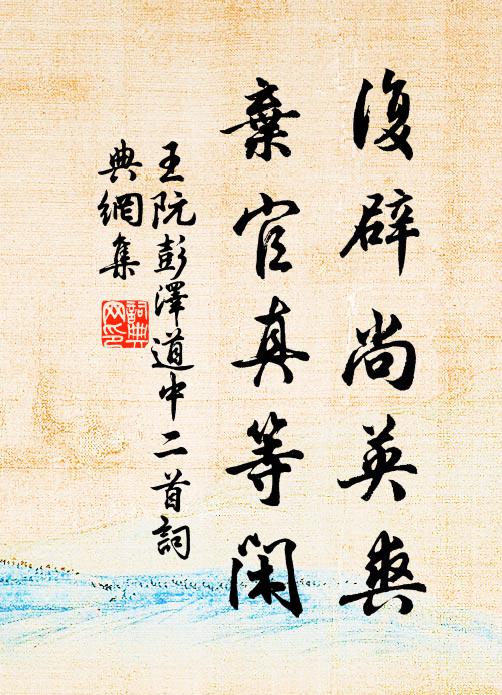 復辟尚英爽
棄官真等閑
王阮彭澤道中二首詞
典網集
詞典
网印